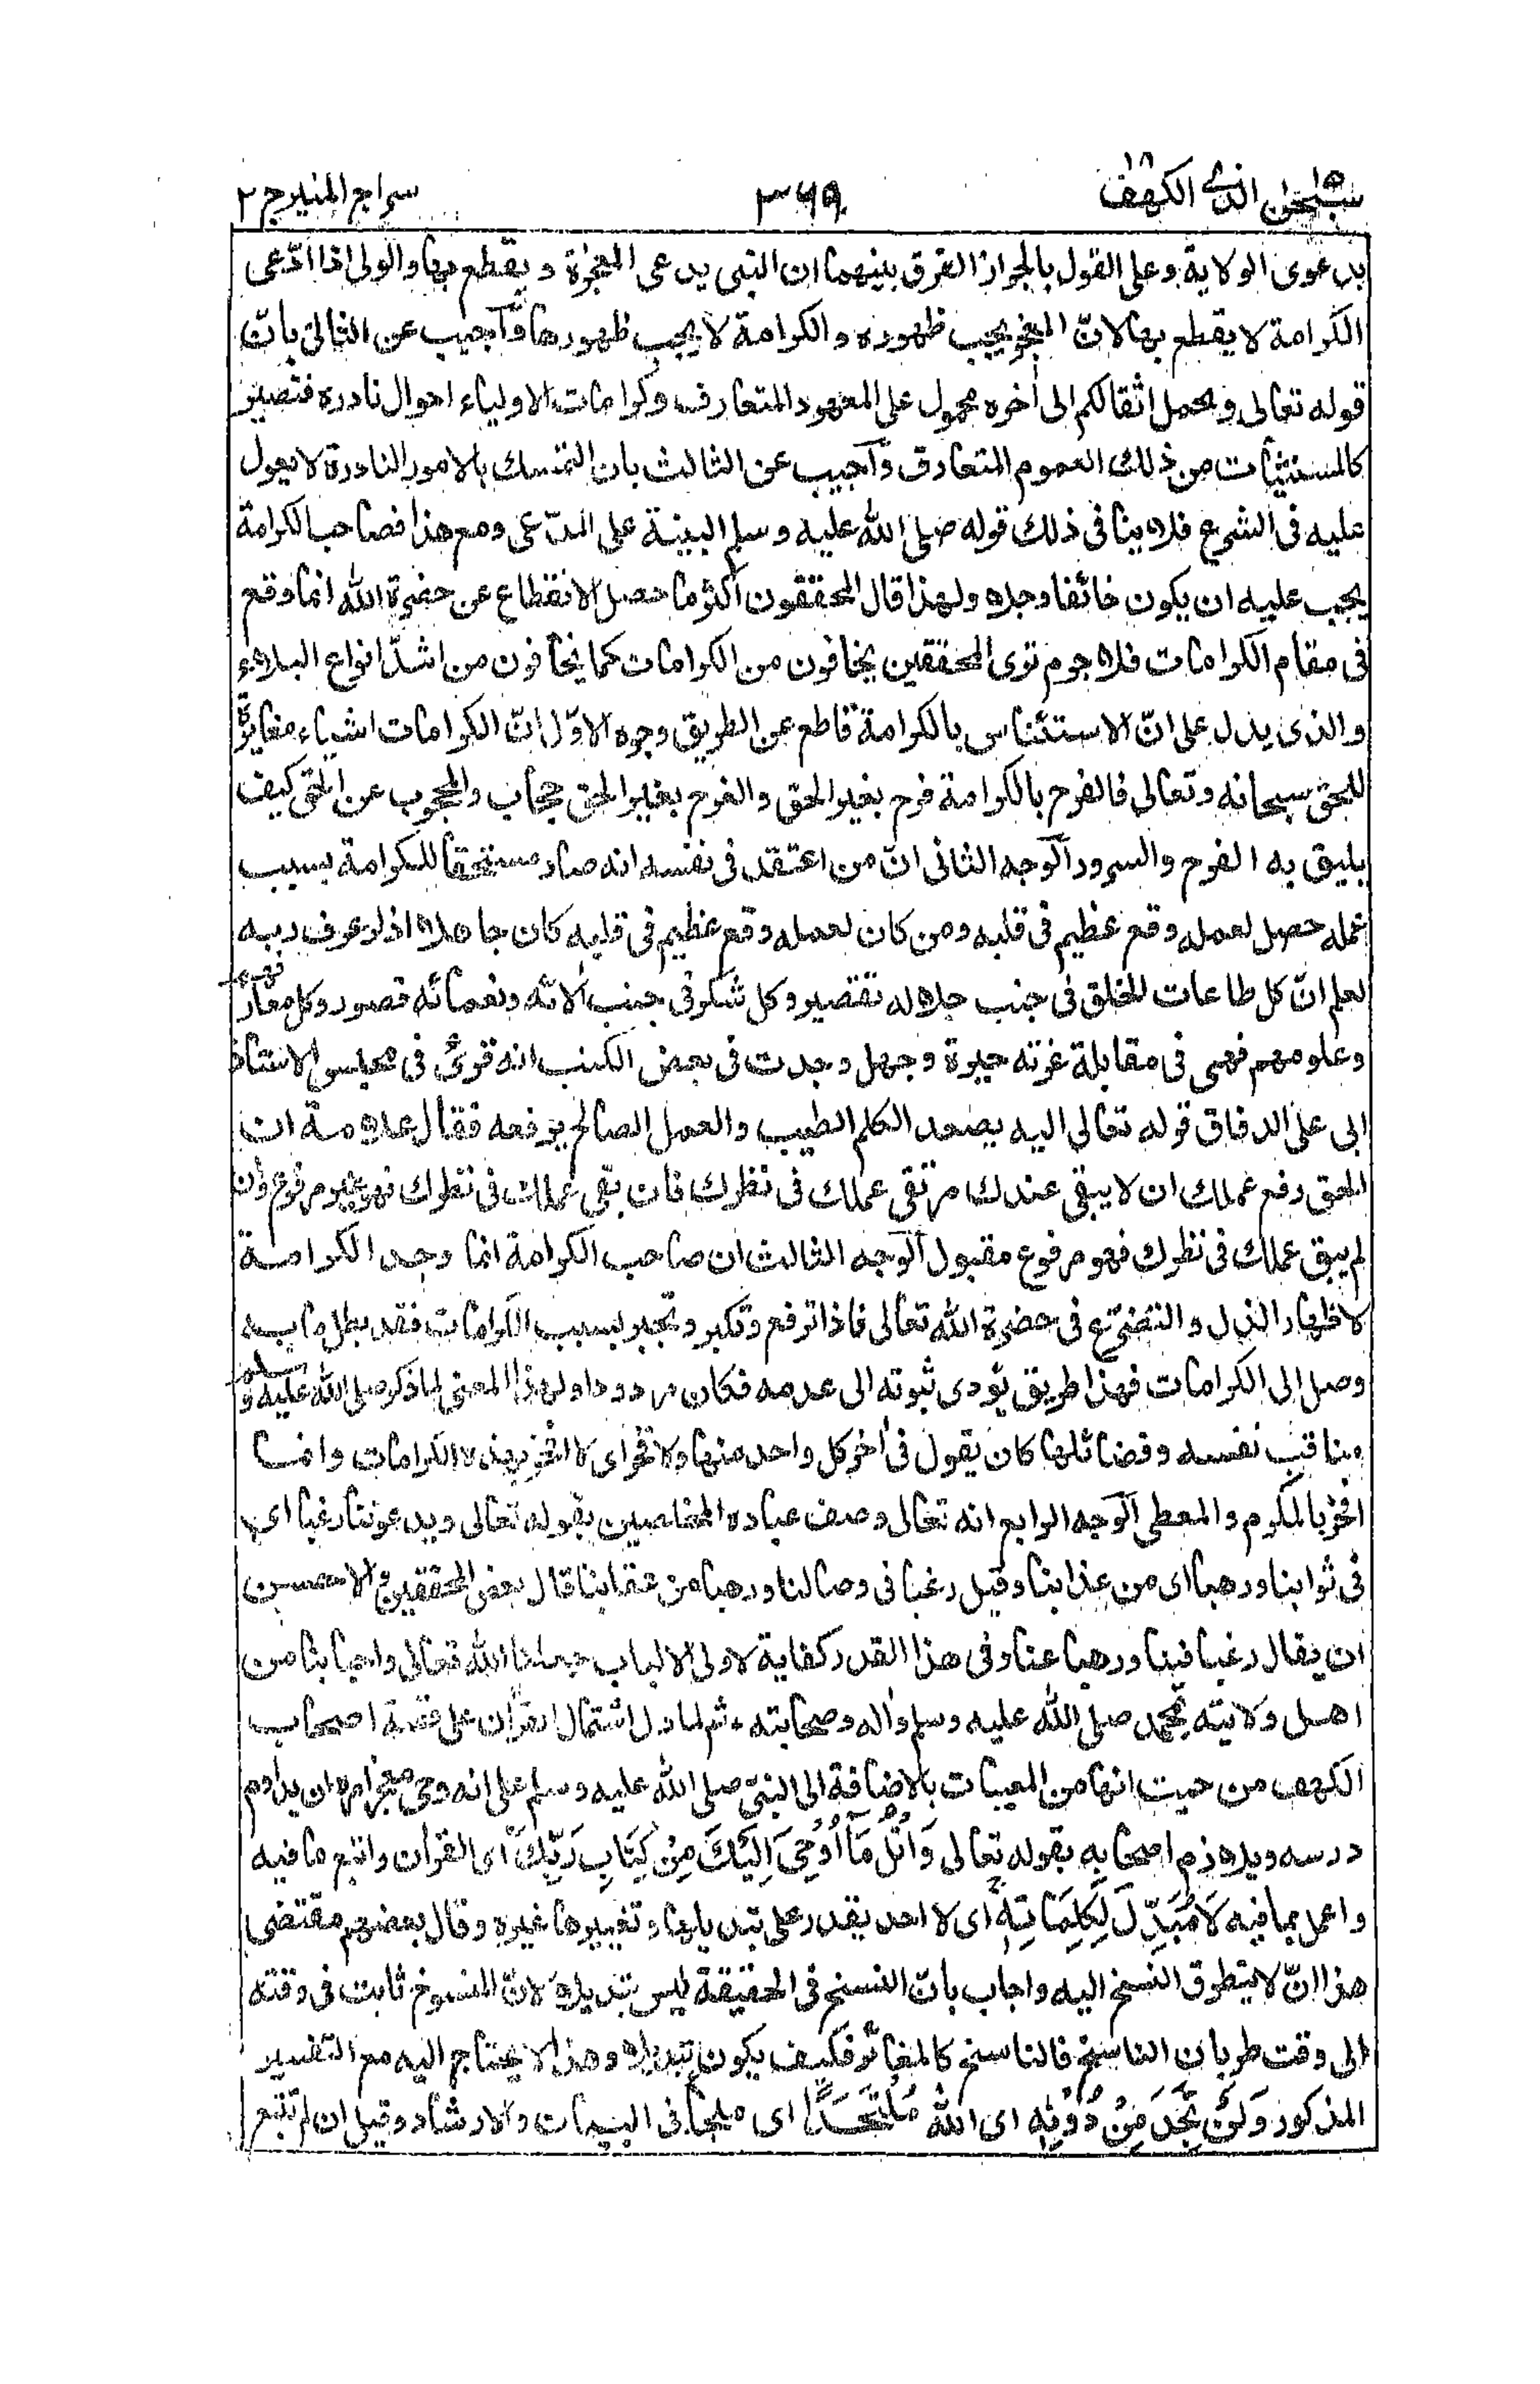 سبحٰن الذی ١٥ الکهف ١٨
٣٦٩
سراج المنیر ج ٢
بدعوی الولایة وعلی القول بالجواز الفرق بینهما ان النبی یدعی المعجزة ویقطع بها والولی اذا ادّعی
الکرامة لا یقطع بها لانّ المعجز یجب ظهوره والکرامة لا یجب ظهورها وآجیب عن الثانی بانّ
قوله تعالی وتحمل اثقالکم الی اٰخره محمول علی المعهود المتعارف وکرامات الاولیاء احوال نادره فتصیر
کالمستثنیات من ذلك العموم المتعارف وآجیب عن الثالث بان التمسك بالامور النادرة لا یعول
علیه فی الشرع فلا ینافی ذلك قوله صلی الله علیه وسلم البینة علی المدّعی ومع هذا فصاحب الکرامة
یجب علیه ان یکون خائفا وجلا ولهذا قال المحققون أکثر ما حصل الانقطاع عن حضرة الله انما وقع
فی مقام الکرامات فلا جرم تری المحققین یخافون من الکرامات کما یخافون من اشدّ انواع البلاء
والذی یدل علی انّ الاستئناس بالکرامة قاطع عن الطریق وجوه الاوّل انّ الکرامات اشیاء مغایرة
للحق سبحانه وتعالی فالفرح بالکرامة فرح بغیر الحق والفرح بغیر الحق حجاب والمحجوب عن الحق کیف
یلیق به الفرح والسرور آلوجه الثانی انّ من اعتقد فی نفسه انه صار مستحقا للکرامة بسبب
عمله حصل لعمله وقع عظیم فی قلبه ومن کان لعمله وقع عظیم فی قلبه کان جاهلا اذ لو عرف ربه
لعلم انّ کل طاعات الخلق فی جنب جلاله تقصیر وکل شکر فی جنب اٰلائه ونعمائه قصور وکل معارفهم
وعلومهم فهی فی مقابلة عزته حیرة وجهل وجدت فی بعض الکتب انه قرئ فی مجلس الاستاذ
ابی علی الدقاق قوله تعالی الیه یصعد الکلم الطیب والعمل الصالح یرفعه فقال علامة ان
الحق رفع عملك ان لا یبقی عندك مرتقی عملك فی نظرك فان بقی عملك فی نظرك فهو غیر مرفوع وان
لم یبق عملك فی نظرك فهو مرفوع مقبول آلوجه الثالث ان صاحب الکرامة انما وجد الکرامة
لاظهار الذل والتضرّع فی حضرة الله تعالی فاذا ترفع وتکبر وتجبر بسبب الکرامات فقد بطل ما به
وصل الی الکرامات فهذا طریق یؤدی ثبوته الی عدمه فکان مردودا ولهذا المعنی لما ذکر صلی الله علیه وسلم
مناقب نفسه وفضائلها کان یقول فی اٰخر کل واحد منها ولا فخر ای لا افتخر بهذه الکرامات وانما
افتخر بالمکرم والمعطی آلوجه الرابع انه تعالی وصف عباده المخلصین بقوله تعالی ویدعوننا رغبا ای
فی ثوابنا ورهبا ای من عذابنا وقیل رغبا فی وصالنا ورهبا من عقابنا قال بعض المحققین والاحسن
ان یقال رغبا فینا ورهبا عنا وفی هذا القدر کفایة لاولی الالباب جعلنا الله تعالی واحبابنا من
اهل ولایته بمحمد صلی الله علیه وسلم واٰله وصحابته ٭ ثم لما دل اشتمال القراٰن علی قصة اصحاب
الکهف من حیث انها من المغیبات بالاضافة الی النبیّ صلی الله علیه وسلم علی انه وحی معجز امره ان یداوم
درسه ویلازم اصحابه بقوله تعالی وَاتْلُ مَآ أُوْحِیَ اِلَیْكَ مِنْ کِتَابِ رَبِّكَ ای القراٰن واتبع ما فیه
واعمل بما فیه لَا مُبَدِّلَ لِکَلِمَاتِهٖ ای لا احد یقدر علی تبدیلها وتغییرها غیره وقال بعضهم مقتضی
هذا انّ لا یتطرق النسخ الیه واجاب بانّ النسخ فی الحقیقة لیس تبدیلا لانّ المنسوخ ثابت فی وقته
الی وقت طریان الناسخ فالناسخ کالمغائر فکیف یکون تبدیلا وهذا لا یحتاج الیه مع التفسیر
المذکور وَلَنْ تَجِدَ مِنْ دُوْنِهٖ ای الله مُلْتَحَدًا ای ملجأ فی البیان والارشاد وقیل ان لم تتبع